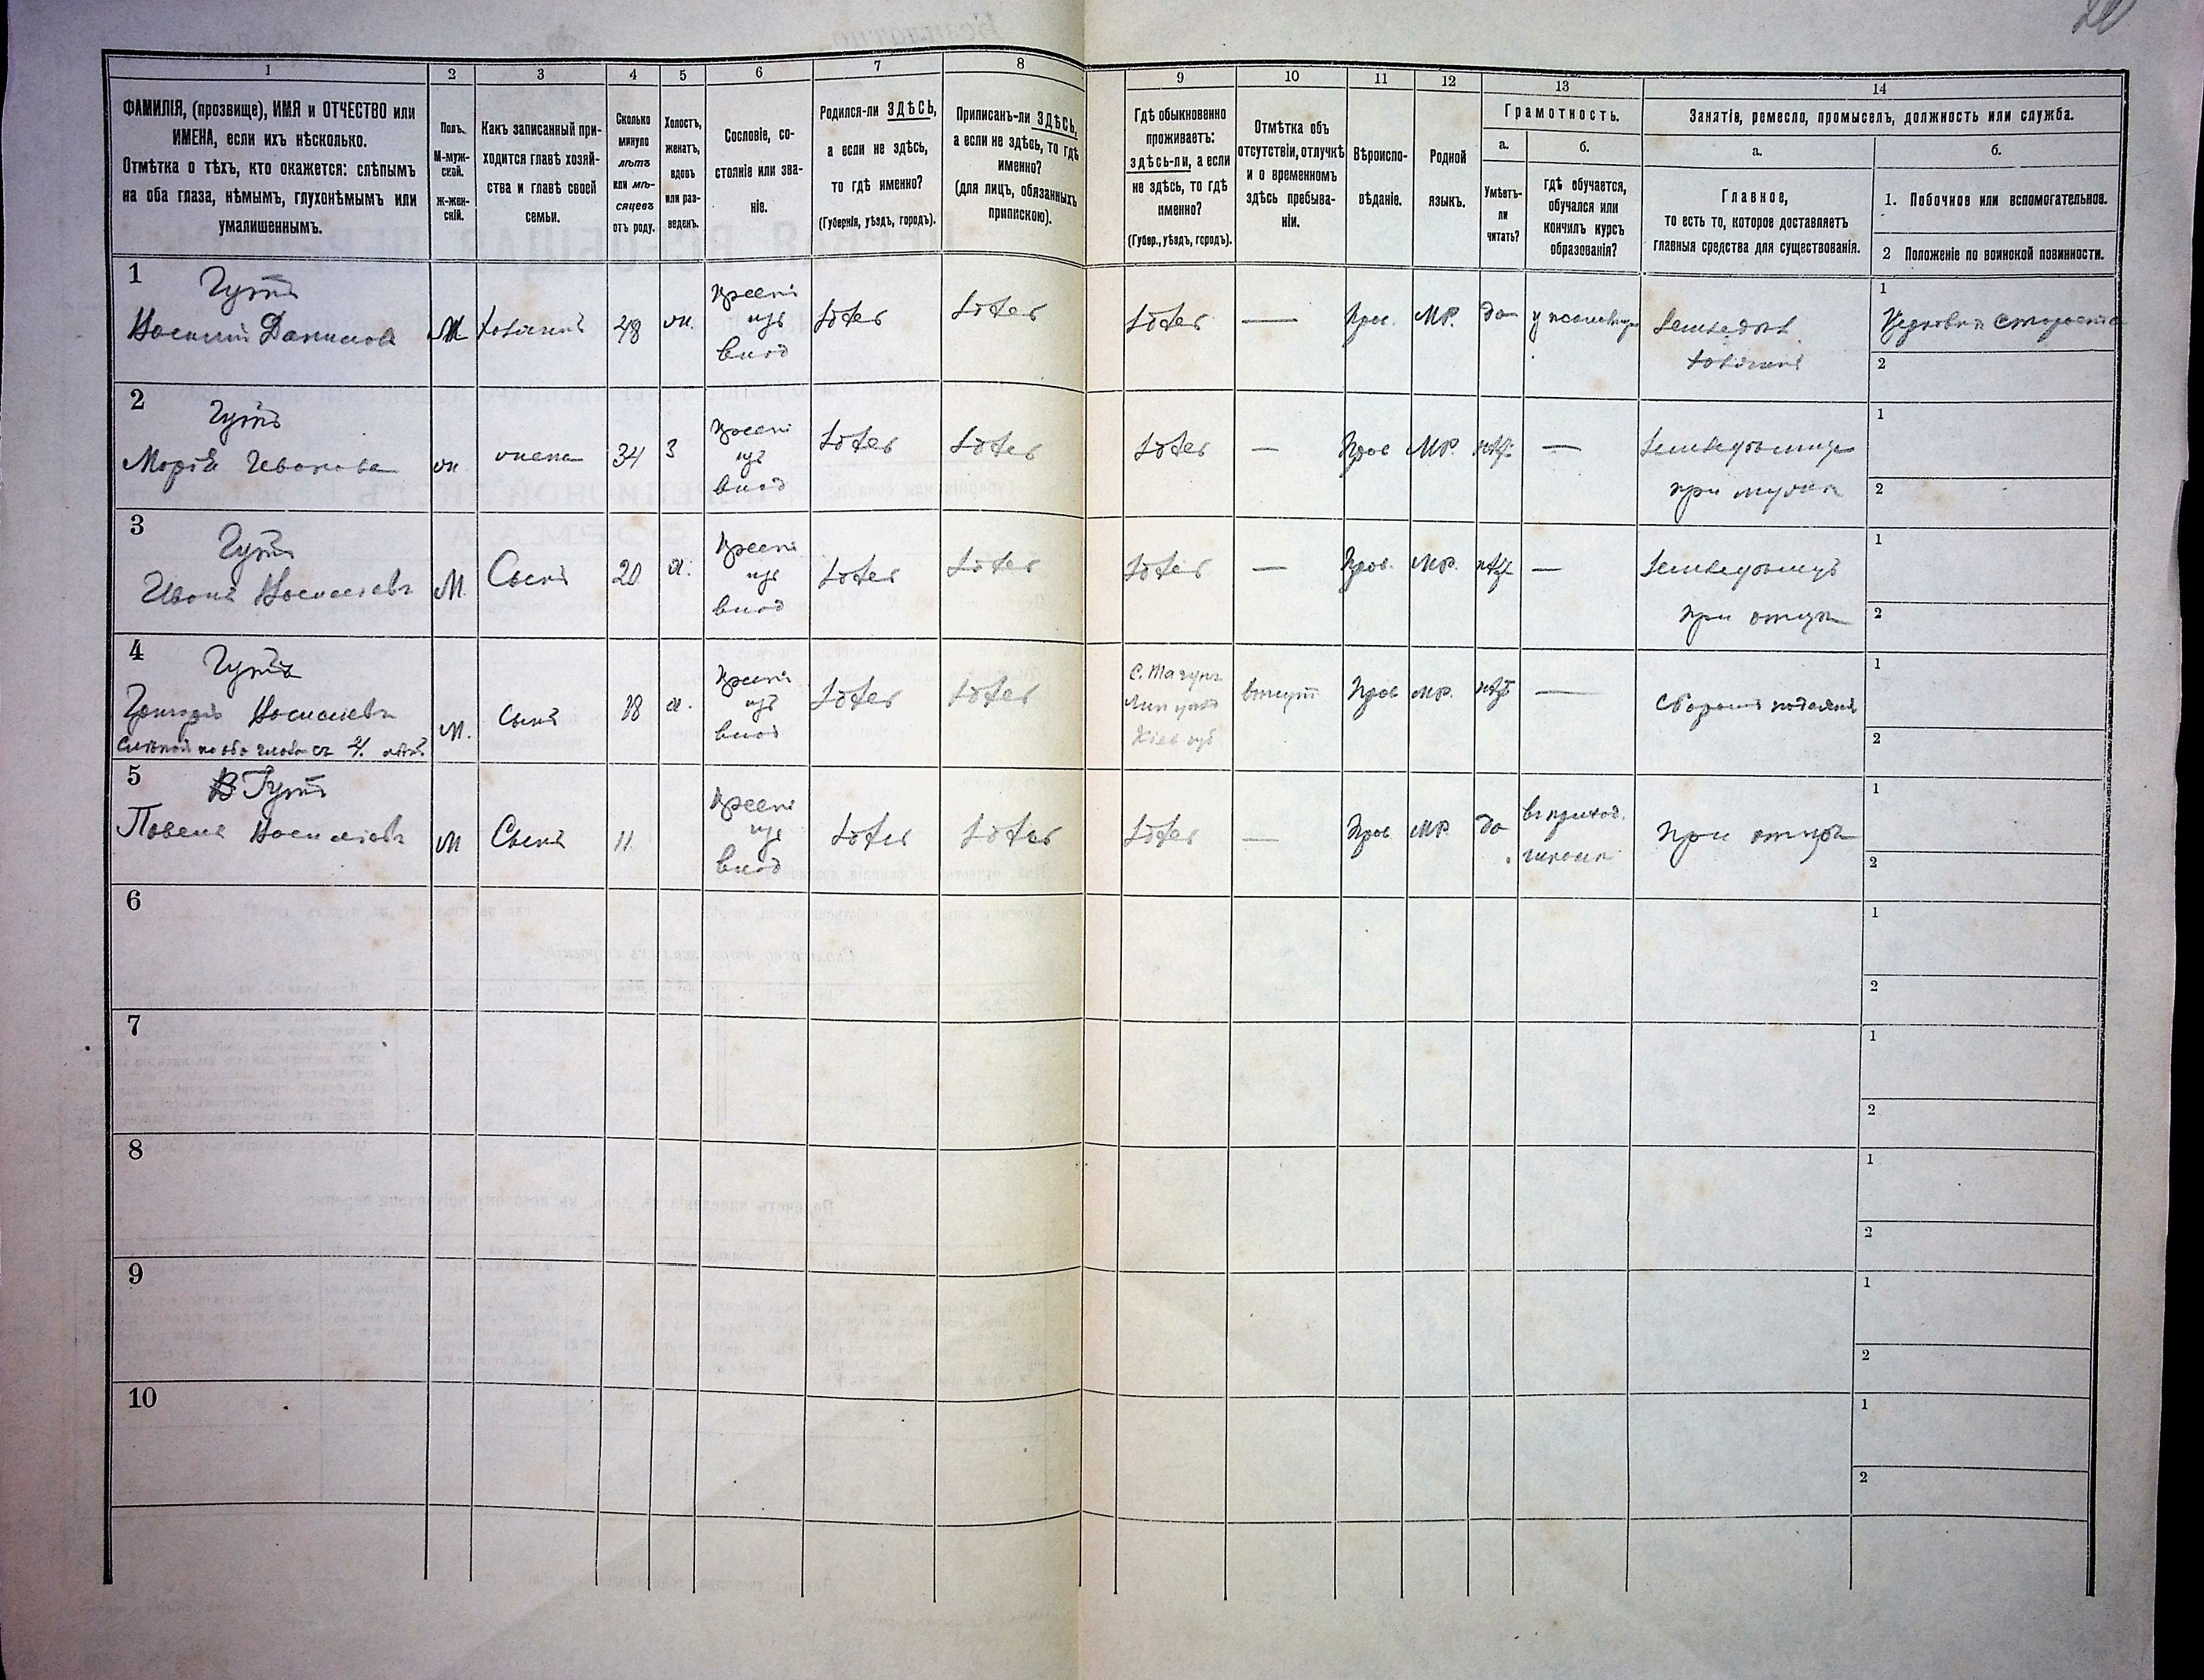 1
2
3
4
5
6
7
8
9
10
11
12
13
14
ФАМИЛІЯ, (прозвище), ИМЯ и ОТЧЕСТВО или
ИМЕНА, если ихъ нѣсколько.
Отмѣтка о тѣхъ, кто окажется: слѣпымъ
на оба глаза, нѣмымъ, глухонѣмымъ или
умалишеннымъ.
Полъ.
М-муж-
ской.
Ж-жен-
скій.
Какъ записанный при-
ходится главѣ хозяй-
ства и главѣ своей
семьи.
Сколько
минуло
лѣтъ
или мѣ-
сяцевъ
отъ роду.
Холостъ,
женатъ,
вдовъ
или раз-
веденъ.
Сословіе, со-
стояніе или зва-
ніе.
Родился-ли ЗДѢСЬ,
а если не здѣсь,
то гдѣ именно?
(Губернія, уѣздъ, городъ).
Приписанъ-ли ЗДѢСЬ,
а если не здѣсь, то гдѣ
именно?
(для лицъ, обязанныхъ
припискою).
Гдѣ обыкновенно
проживаетъ:
здѣсь-ли, а если
не здѣсь, то гдѣ
именно?
(Губер., уѣздъ, городъ).
Отмѣтка объ
отсутствіи, отлучкѣ
и о временномъ
здѣсь пребыва-
ніи.
Вѣроиспо-
вѣданіе.
Родной
языкъ.
Грамотность.
а.
Умѣетъ-
ли
читать?
б.
гдѣ обучается,
обучался или
кончилъ курсъ
образованія?
Занятіе, ремесло, промыселъ, должность или служба.
а.
Главное,
то есть то, которое доставляетъ
главныя средства для существованія.
б.
1. Побочное или вспомогательное.
2 Положеніе по воинской повинности.
1
Гутъ
Василій Даниловъ
М
хозяинъ
48
ж.
Крест.
изъ
влад
здѣсь
здѣсь
здѣсь
—
Прав.
МР.
да
Земледѣл.
хозяинъ
1
2
2
Гутъ
Марія Иванова
ж
жена
34
З
Крест
изъ
влад
здѣсь
здѣсь
здѣсь
—
Прав
МР.
нѣт
—
при мужѣ
1
2
3
Гутъ
Иванъ Васильевъ
М.
Сынъ
20
х.
Крест.
изъ
влад
здѣсь
здѣсь
здѣсь
—
Прав.
МР.
нѣт
—
при отцѣ
1
2
4
Гутъ
Григорій Васильевъ
М.
Сынъ
18
х.
Крест
изъ
влад
здѣсь
здѣсь
Кіев губ
Прав
МР.
нѣт
—
1
2
5
Гутъ
Павелъ Васильевъ
М
Сынъ
11
Крест
изъ
влад
здѣсь
здѣсь
здѣсь
—
Прав
МР.
да
въ приход.
школѣ
при отцѣ
1
2
6
1
2
7
1
2
8
1
2
9
1
2
10
1
2